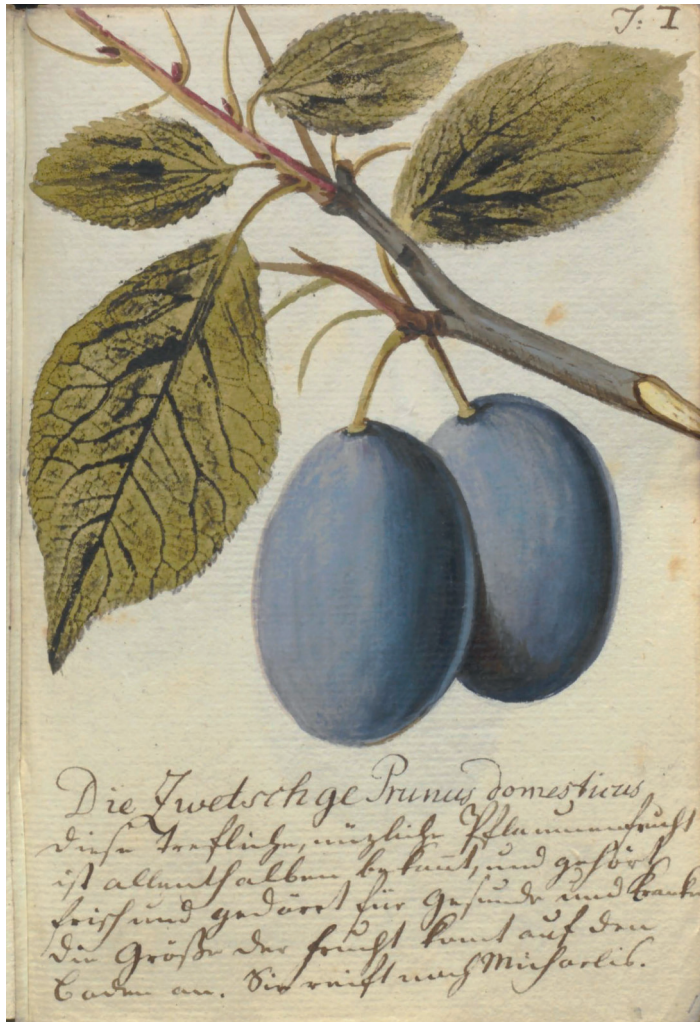 T: I
Die Zwetschge Prunus domesticus
diese trefliche, nüzliche Pflaumenfrucht
ist allenthalben bekannt, und gehört
frisch und gedörrt für Gesunde und Kranke
die Größe der frucht komt auf den
Boden an. Sie reift nach Michaelis.